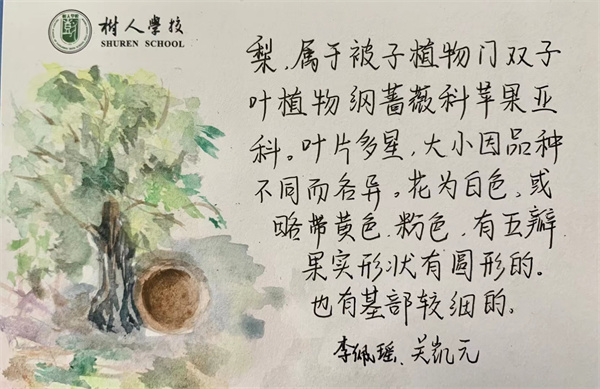 樹人學校
SHUREN SCHOOL
梨，属于被子植物门双子
叶植物纲蔷薇科苹果亚
科。叶片多呈，大小因品种
不同而各异。花为白色，或
略带黄色、粉色，有五瓣。
果实形状有圆形的。
也有基部较细的。
李佩瑶、关凯元